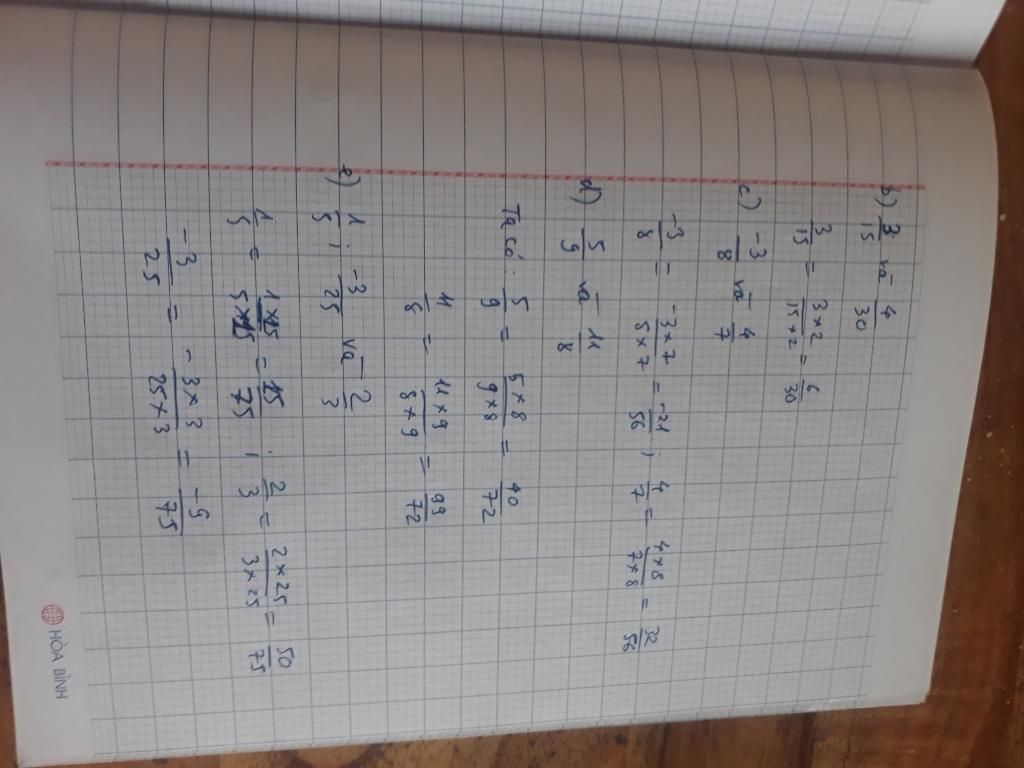 b) 3/15 và 4/30
3/15 = 3×2/15×2 = 6/30
c) -3/8 và 4/7
-3/8 = -3×7/5×7 = -21/56 ; 4/7 = 4×8/7×8 = 32/56
d) 5/9 và 11/8
Ta có: 5/9 = 5×8/9×8 = 40/72
11/8 = 11×9/8×9 = 99/72
e) 1/5 ; -3/25 và 2/3
1/5 = 1×15/5×15 = 15/75 ; 2/3 = 2×25/3×25 = 50/75
-3/25 = -3×3/25×3 = -9/75
HÒA BÌNH